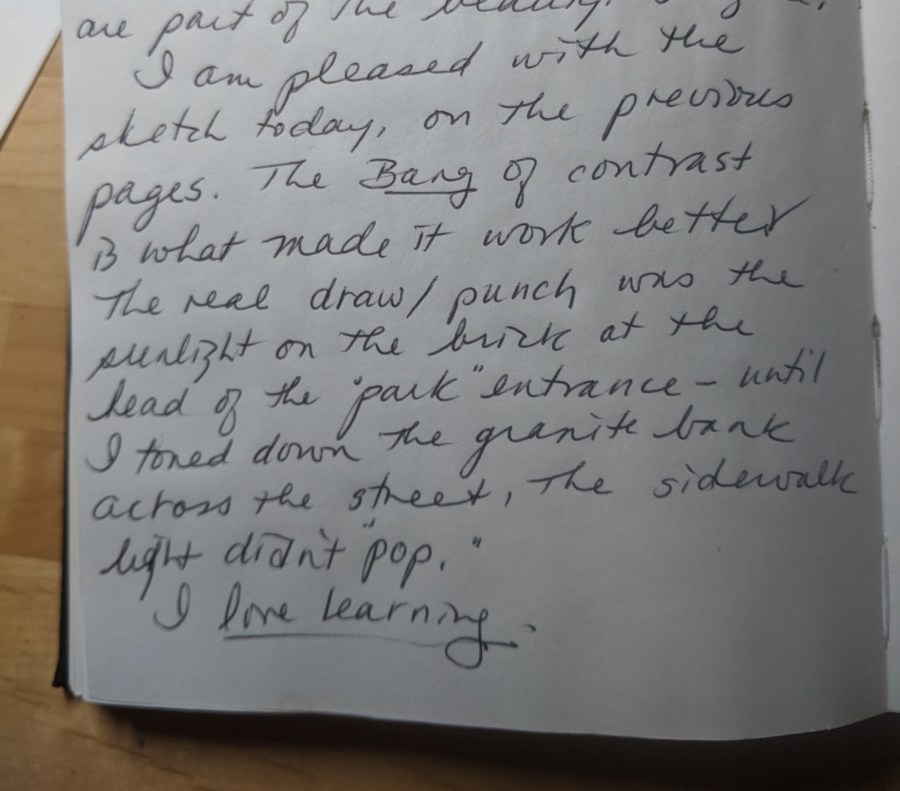 are part of the beauty.
I am pleased with the
sketch today, on the previous
pages. The Bang of contrast
is what made it work better
The real draw/punch was the
sunlight on the brick at the
head of the "park" entrance – until
I toned down the granite bank
across the street, the sidewalk
light didn't "pop."
I love learning.